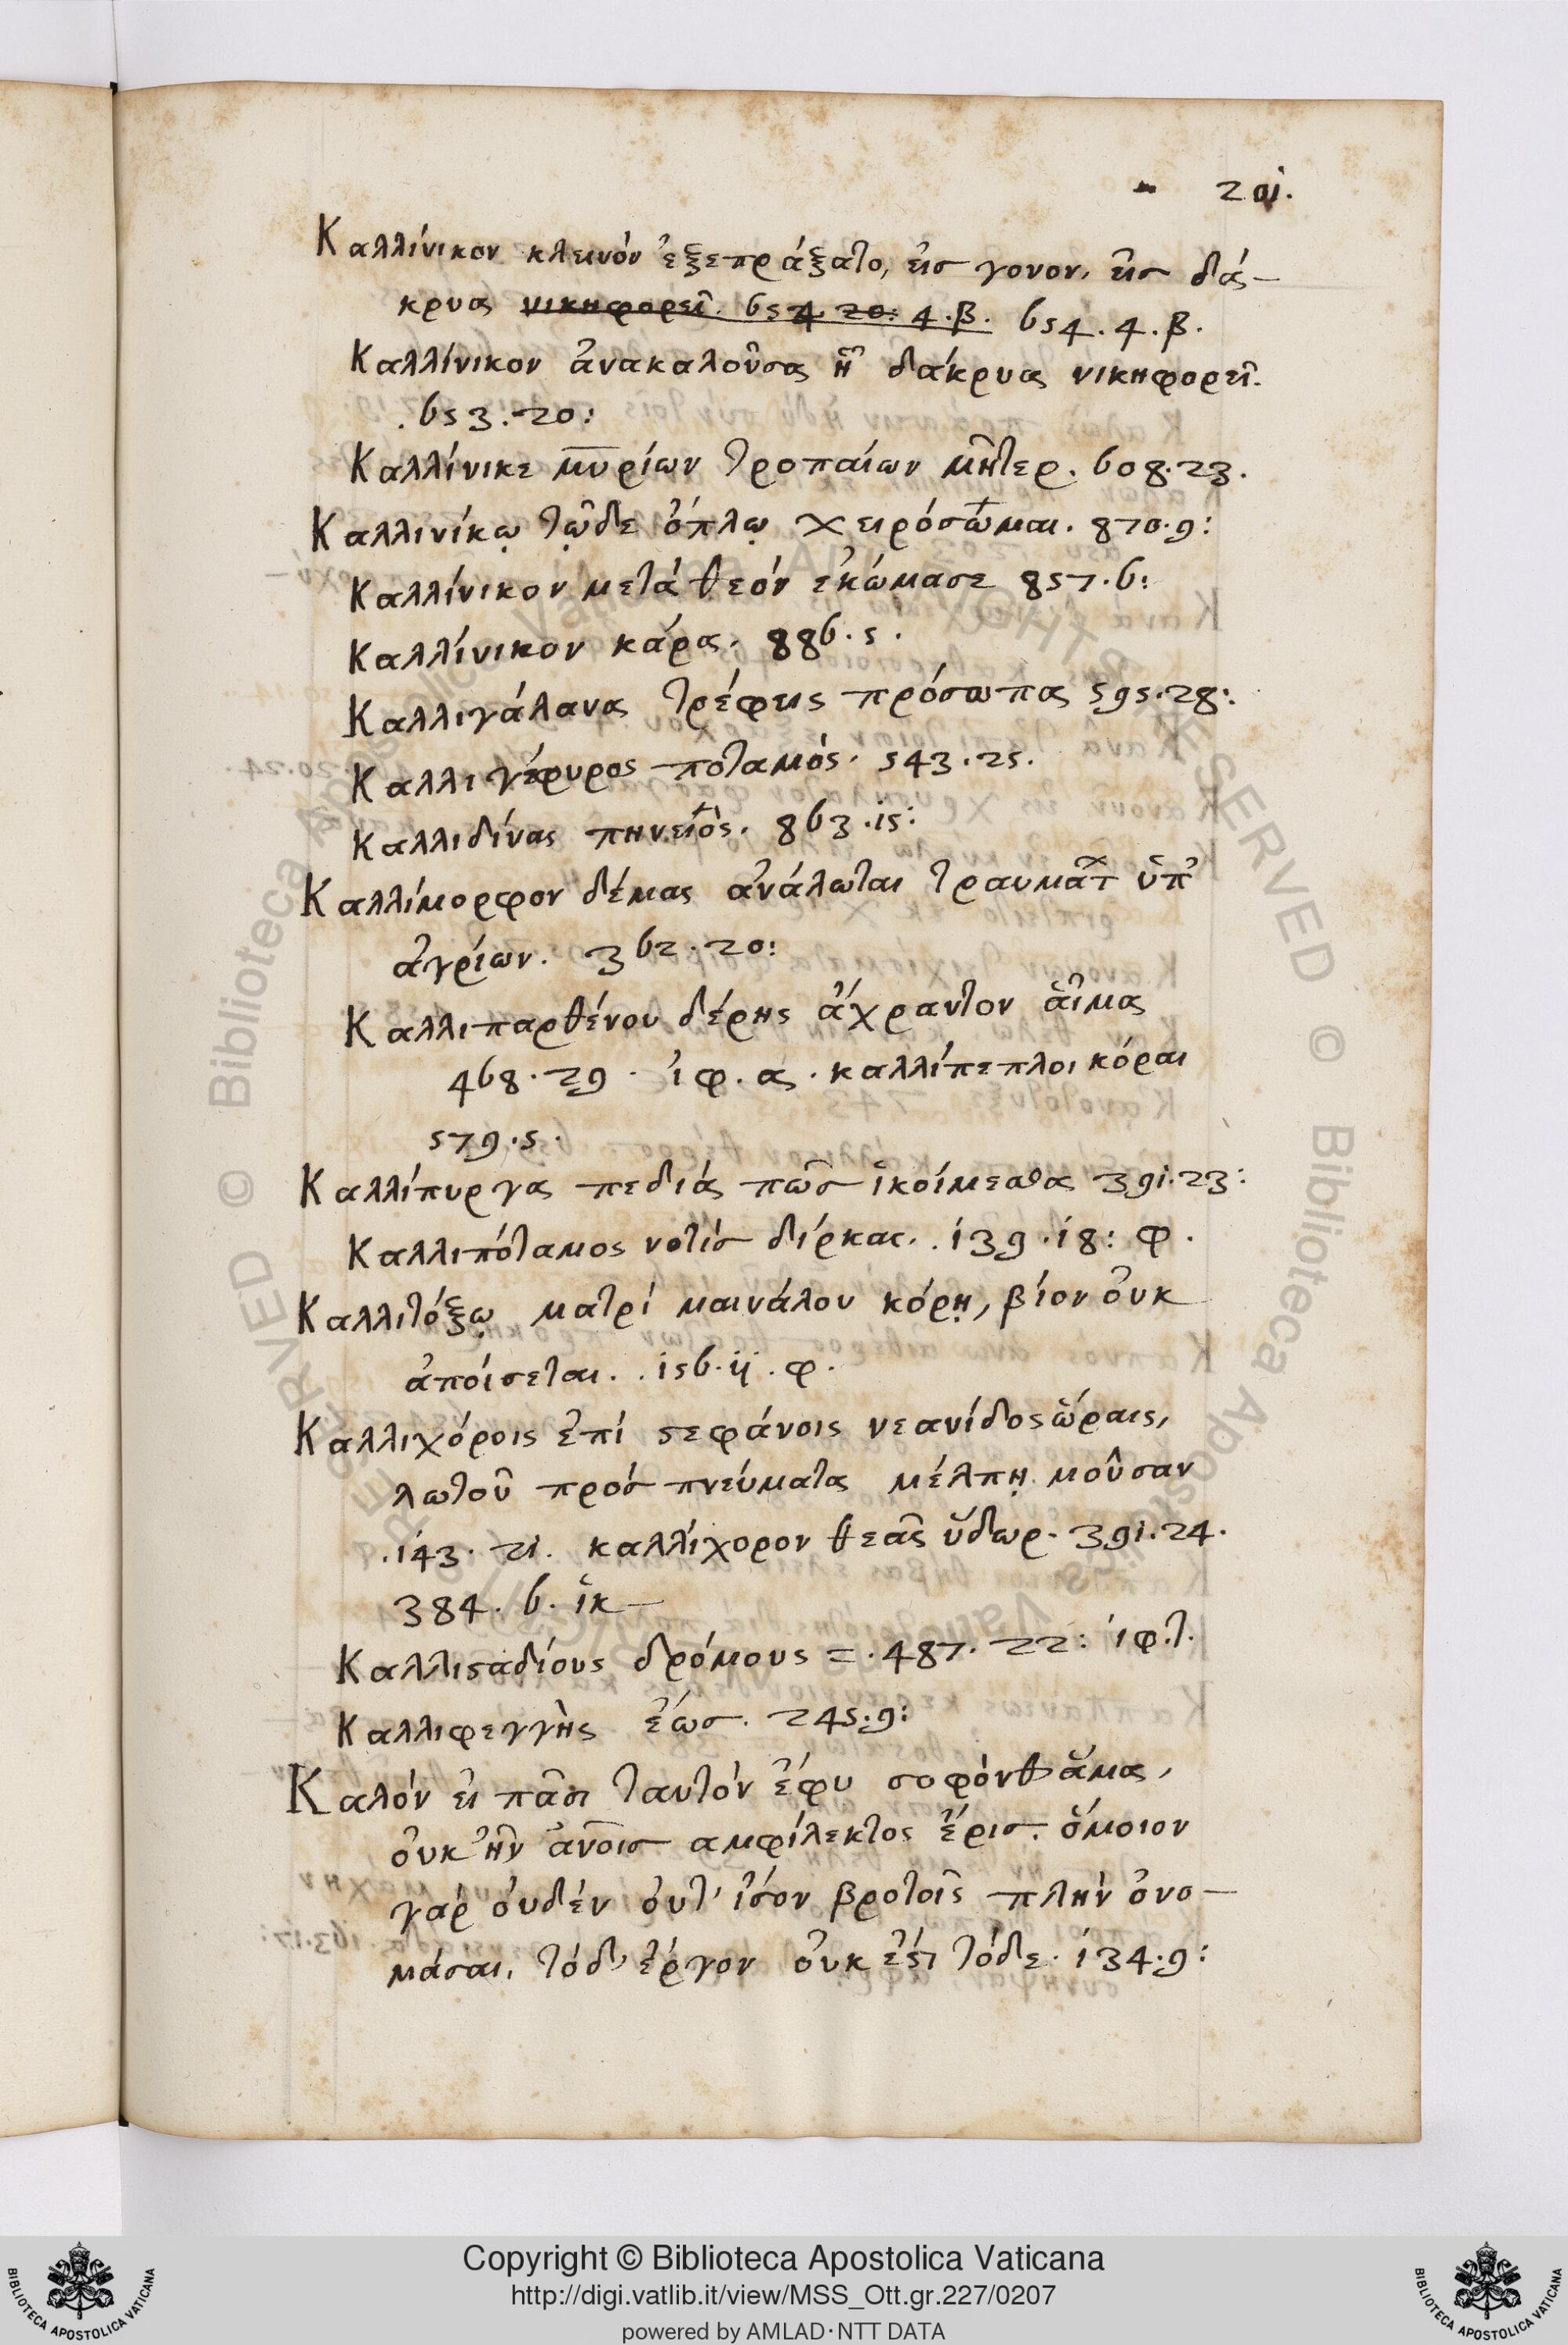 201.
Καλλίνικον κλεινόν ἐξεπράξατο, εἰσ γονον. εἰσ δά-
κρυα νικηφορεῖ. 654. 20: 4.β. 654.4.β.
Καλλίνικον ἀνακαλοῦσα ἢ δάκρυα νικηφορεῖ.
.653.20:
Καλλίνικε μυρίων τροπαίων μῆτερ. 608.23.
Καλλινίκῳ τῷδε ὅπλῳ χειρόσωμαι. 870.9:
Καλλίνικον μετά θεόν ἐκώμασε 857.6:
Καλλίνικον κάρα. 886.5.
Καλλιγάλανα τρέφεις πρόσωπα 595.28:
Καλλιγέφυρος ποταμός. 543.25.
Καλλιδίνας πηνειός. 863.15:
Καλλίμορφον δέμας ἀνάλωται τραυμάτ ὑπ'
ἀγρίων. 362.20:
Καλλιπαρθένου δέρης ἄχραντον αἷμα
468.29. ἰφ.α. καλλίπεπλοι κόραι
579.5.
Καλλίπυργα πεδιά πῶσ ἱκοίμεθα 391.23:
Καλλιπόταμος νοτίσ δίρκας. .139.18: φ.
Καλλιτόξῳ ματρί μαινάλου κόρῃ, βίον οὐκ
ἀποίσεται. .156.11.φ.
Καλλιχόροις ἐπί ϛεφάνοις νεανίδος ὥραις,
λωτοῦ πρόσ πνεύματα μέλπῃ μοῦσαν
.143.21. καλλίχορον θεᾶς ὕδωρ. 391.24.
384.6. ἱκ-
Καλλιϛαδίους δρόμους =.487.22: ἰφ.τ.
Καλλιφεγγὴς ἕωσ. 245.9:
Καλόν εἰ πᾶσι ταυτόν ἔφυ σοφόνθ' ἅμα,
οὐκ ἦν ἀνοισ αμφίλεκτος ἔρισ. ὅμοιον
γάρ οὐδέν οὔτ' ἴσον βροτοῖς πλήν ὀνο-
μάσαι. τόδ' ἔργον οὐκ ἔϛι τόδε. 134.9:
Copyright © Biblioteca Apostolica Vaticana
http://digi.vatlib.it/view/MSS_Ott.gr.227/0207
powered by AMLAD·NTT DATA